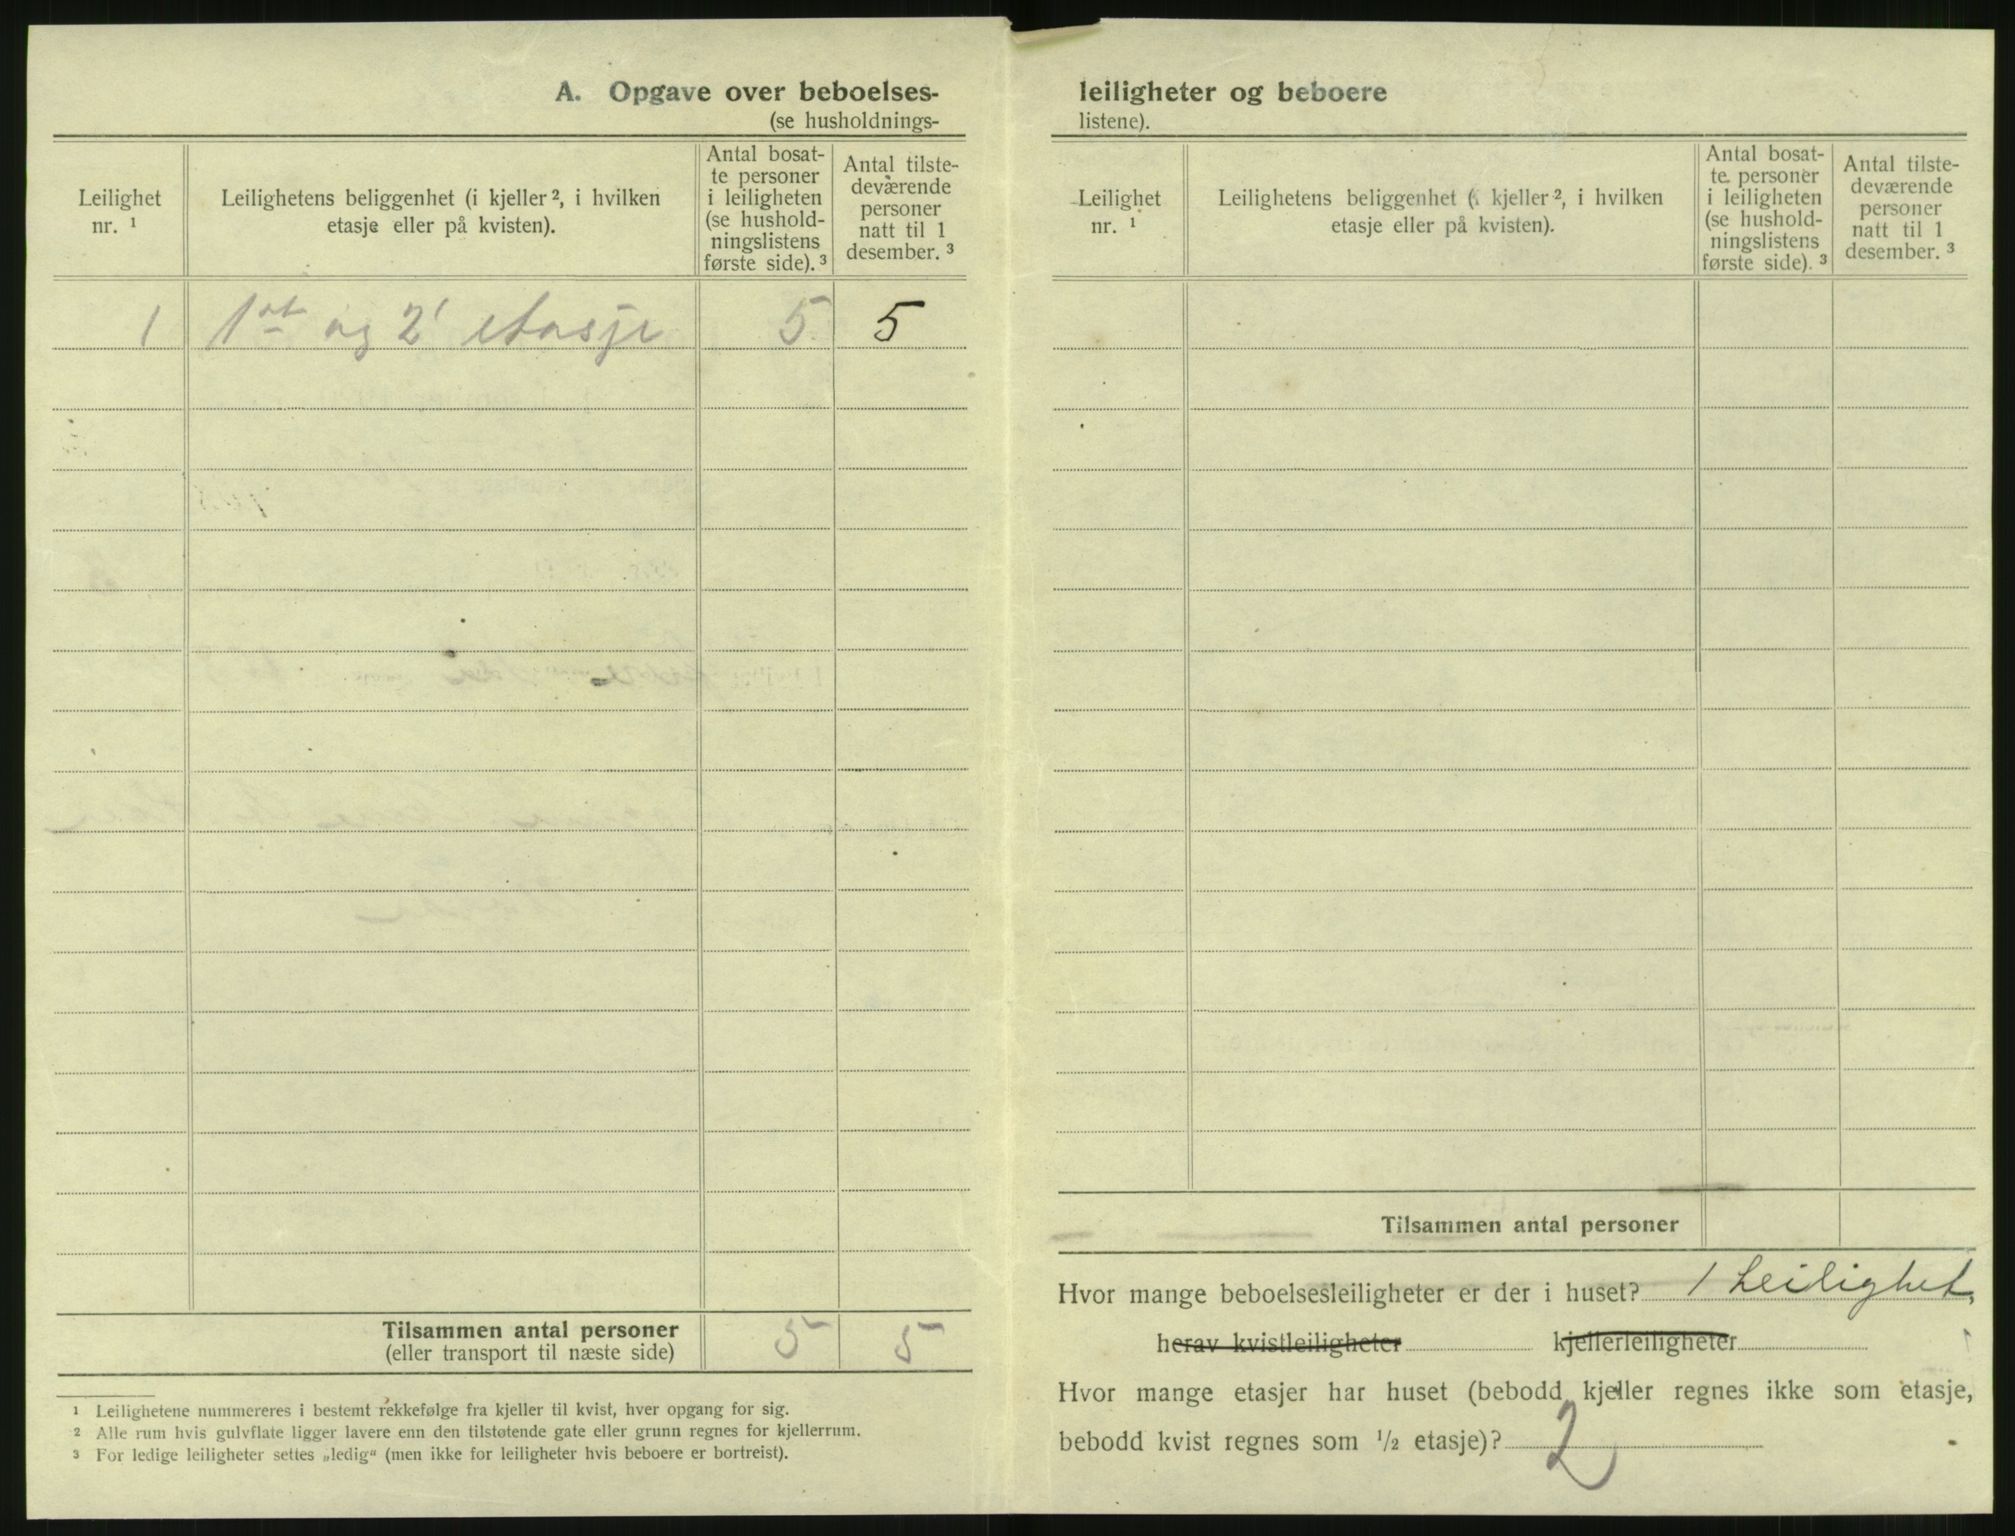 A. Opgave over beboelses-
(se husholdnings-
Leilighet
nr. 1
Leilighetens beliggenhet (i kjeller 2, i hvilken
etasje eller på kvisten).
Antal bosat-
te personer
i leiligheten
(se hushold-
ningslistens
første side). 3
Antal tilste-
deværende
personer
natt til 1
desember. 3
1 1st og 2' etasje 5 5
Tilsammen antal personer 5 5
(eller transport til næste side)
1 Leilighetene nummereres i bestemt rekkefølge fra kjeller til kvist, hver opgang for sig.
2 Alle rum hvis gulvflate ligger lavere enn den tilstøtende gate eller grunn regnes for kjellerrum.
3 For ledige leiligheter settes „ledig“ (men ikke for leiligheter hvis beboere er bortreist).
leiligheter og beboere
listene).
Leilighet
nr. 1
Leilighetens beliggenhet (i kjeller 2, i hvilken
etasje eller på kvisten).
Antal bosat-
te personer
i leiligheten
(se hushold-
ningslistens
første side). 3
Antal tilste-
deværende
personer
natt til 1
desember. 3
Tilsammen antal personer
Hvor mange beboelsesleiligheter er der i huset? 1 Leilighet,
herav kvistleiligheter kjellerleiligheter
Hvor mange etasjer har huset (bebodd kjeller regnes ikke som etasje,
bebodd kvist regnes som 1/2 etasje)? 2